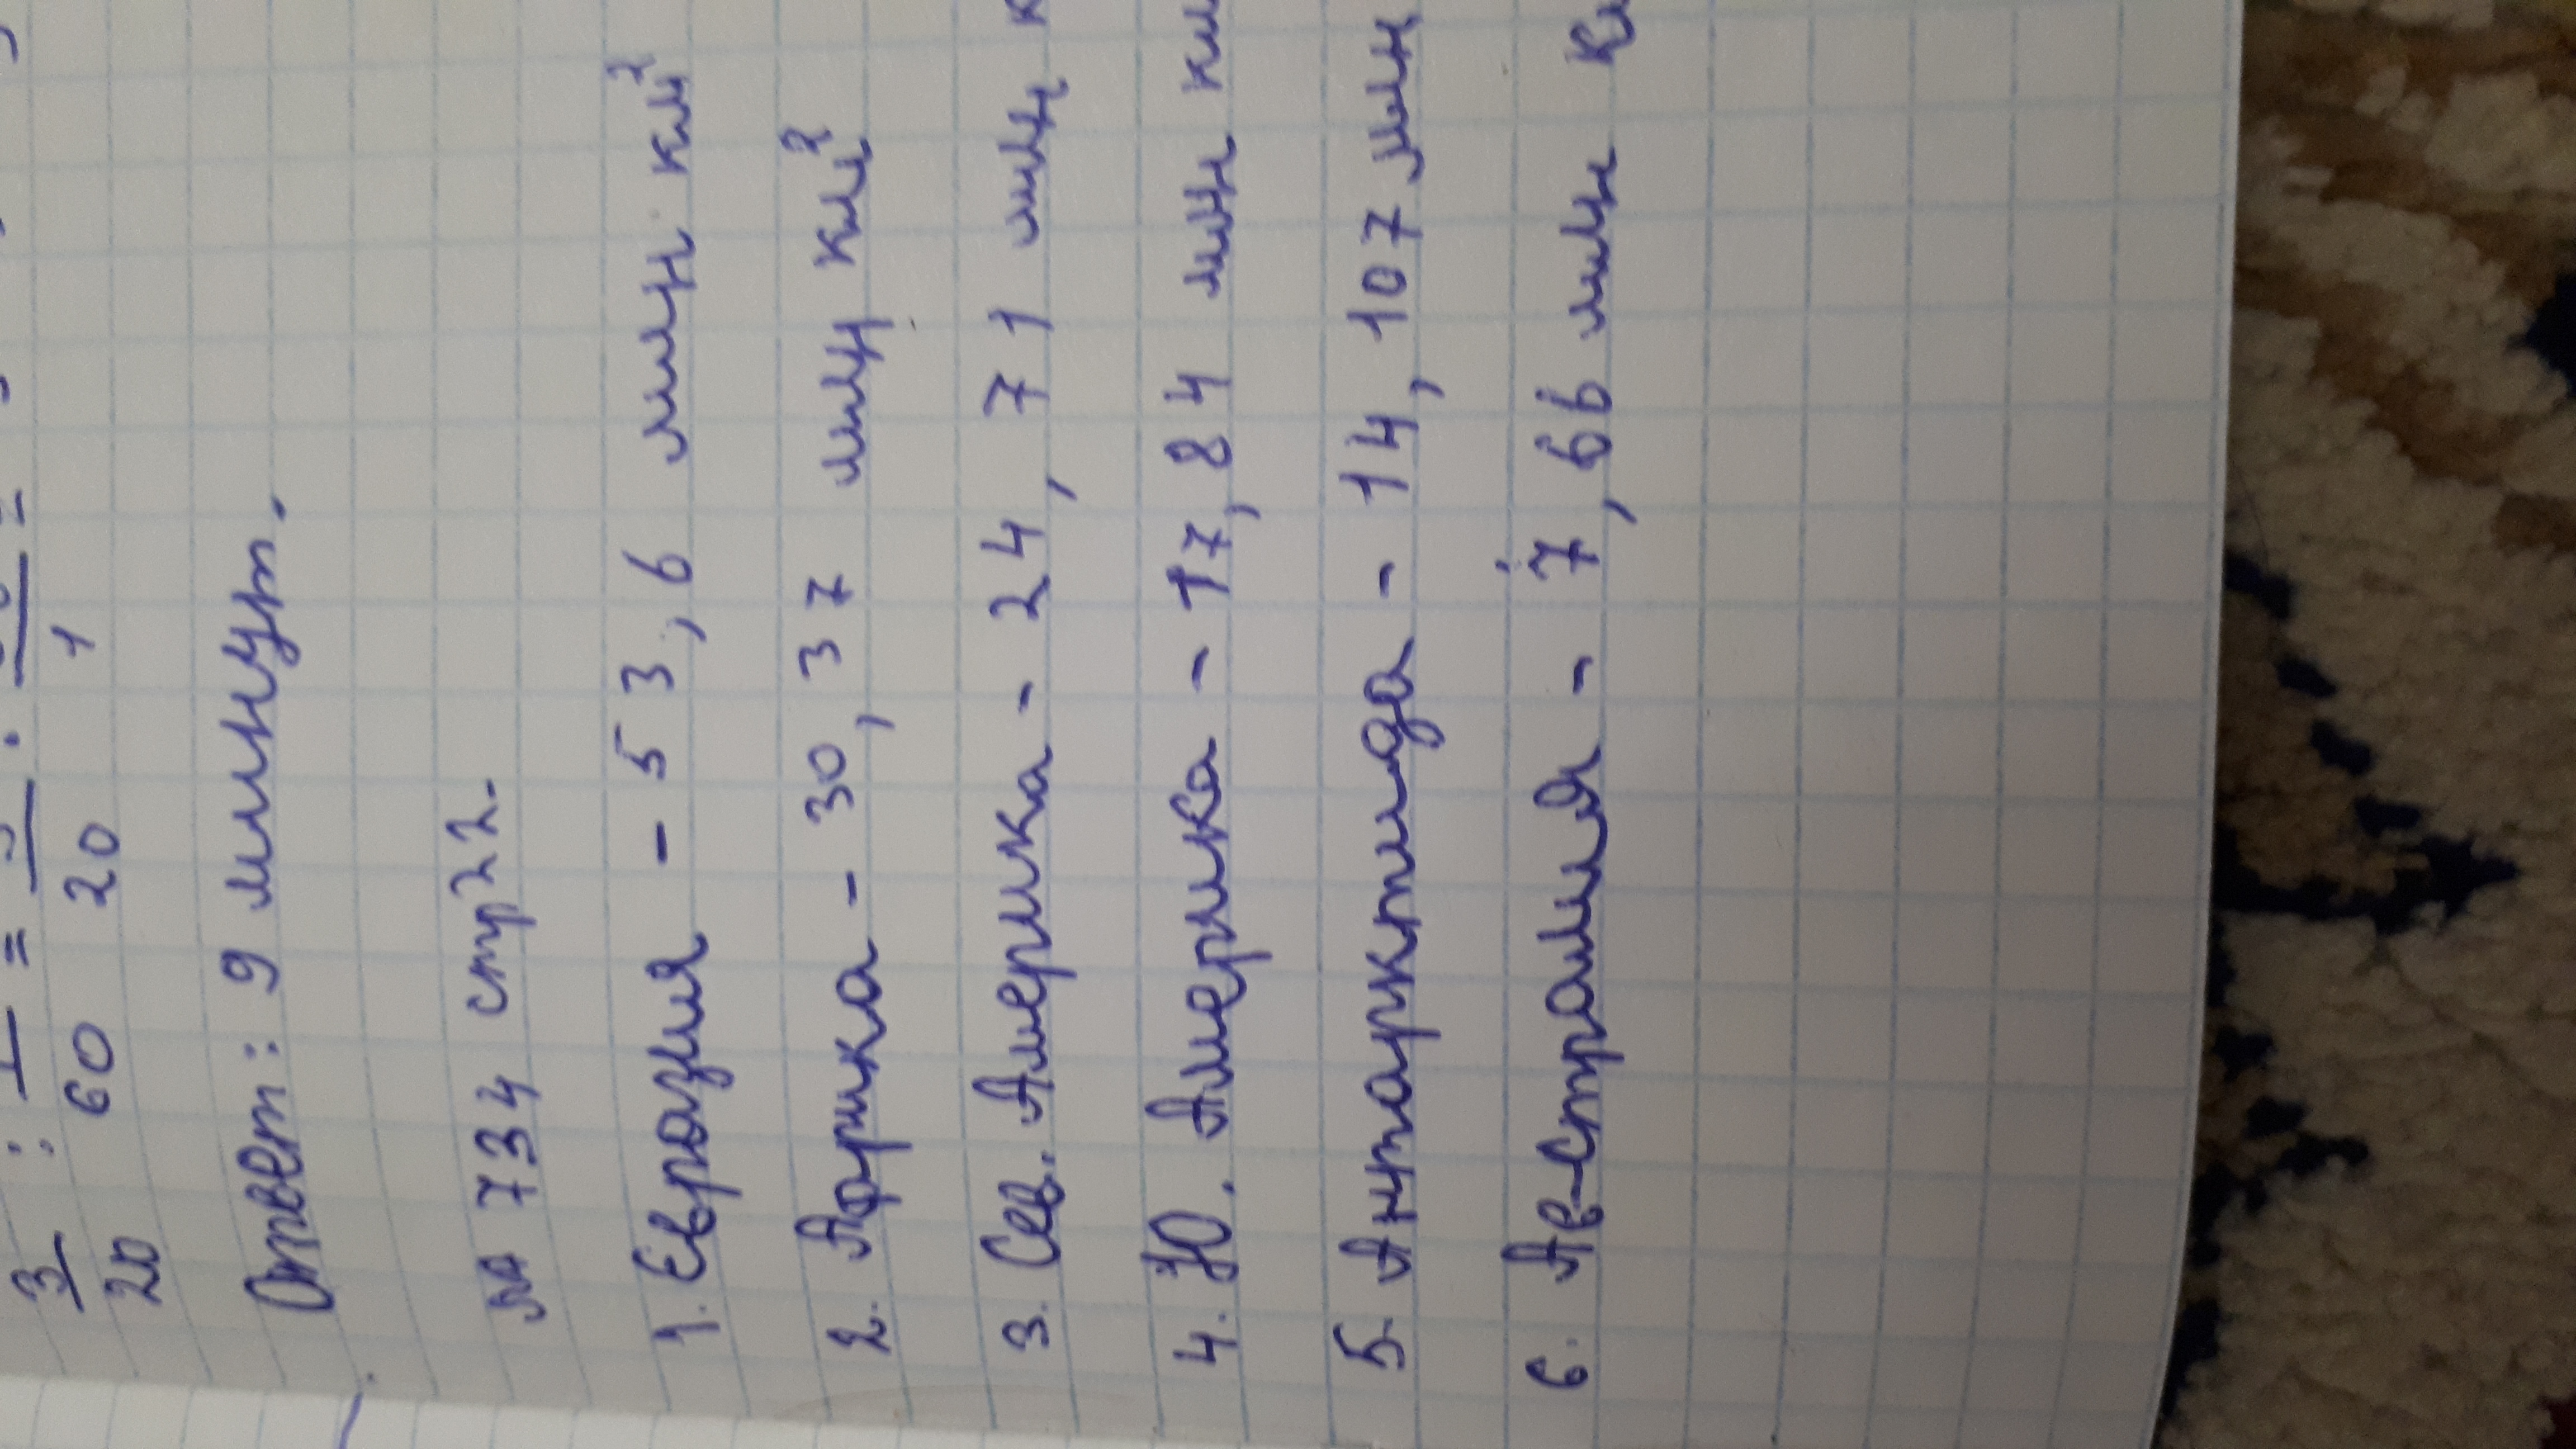 3/20 : 1/60 =
Ответ: 9 минут.
№ 734 стр 22.
1. Евразия - 53,6 млн км²
2. Африка - 30,37 млн км²
3. Сев. Америка - 24,71 млн к
4. Ю. Америка - 17,84 млн км
5. Антарктида - 14,107 млн
6. Австралия - 7,66 млн к